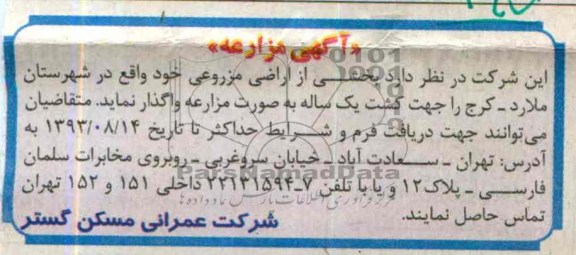 «آگهی مزارعه»
این شرکت در نظر دارد بخشی از اراضی مزروعی خود واقع در شهرستان
ملارد ـ کرج را جهت کشت یک ساله به صورت مزارعه واگذار نماید. متقاضیان
می‌توانند جهت دریافت فرم و شرایط حداکثر تا تاریخ ۱۳۹۳/۰۸/۱۴ به
آدرس: تهران ـ سعادت آباد ـ خیابان سروغربی ـ روبروی مخابرات سلمان
فارسی ـ پلاک۱۲ و یا با تلفن ۷-۲۲۱۳۱۵۹۴ داخلی ۱۵۱ و ۱۵۲ تهران
تماس حاصل نمایند.
شرکت عمرانی مسکن گستر
ParsNamadData